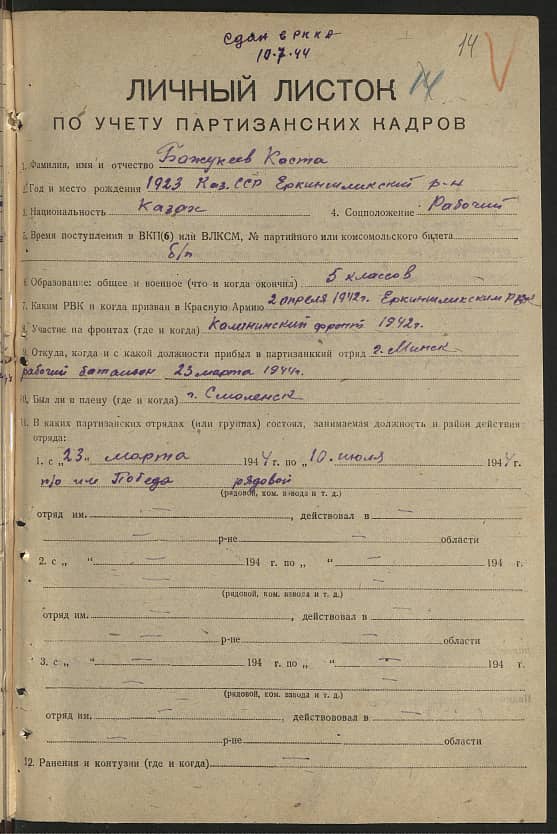 Сдан в РККА
10.7.44
14
ЛИЧНЫЙ ЛИСТОК 14
ПО УЧЕТУ ПАРТИЗАНСКИХ КАДРОВ
1. Фамилия, имя и отчество Божукеев Коста
2. Год и место рождения 1923 Каз. ССР Еркиншиликский р-н
3. Национальность Казах 4. Соцположение Рабочий
5. Время поступления в ВКП(б) или ВЛКСМ, № партийного или комсомольского билета
б/п
6. Образование: общее и военное (что и когда окончил) 5 классов
7. Каким РВК и когда призван в Красную Армию 2 апреля 1942г. Еркиншиликским РВК
8. Участие на фронтах (где и когда) Калининский фронт 1942г.
9. Откуда, когда и с какой должности прибыл в партизанккий отряд г. Минск
рабочий батальон 23 марта 1944г.
10. Был ли в плену (где и когда) г. Смоленск
11. В каких партизанских отрядах (или группах) состоял, занимаемая должность и район действия
отряда:
1. с „23" марта 1944 г. по „10 июля 1944 г.
п/о им Победа рядовой
(рядовой, ком. взвода и т. д.)
отряд им. — , действовал в —
— р-не — области
2. с „ " — 194 г. по „ " — 194 г.
— —
(рядовой, ком. взвода и т. д.)
отряд им. — , действовал в —
— р-не — области
3. с „ " — 194 г. по „ " — 194 г.
— —
(рядовой, ком. взвода и т. д.)
отряд им. — , действововал в —
— р-не — области
12. Ранения и контузии (где и когда) —